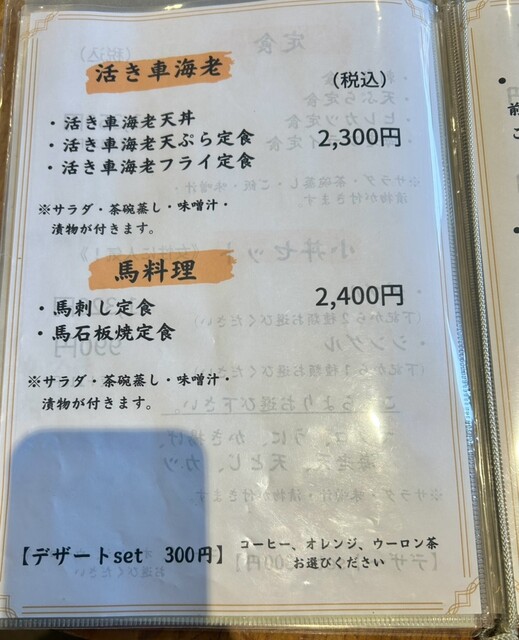 活き車海老
（税込）
・活き車海老天丼
・活き車海老天ぷら定食 2,300円
・活き車海老フライ定食
※サラダ・茶碗蒸し・味噌汁・
漬物が付きます。
馬料理
・馬刺し定食 2,400円
・馬石板焼定食
※サラダ・茶碗蒸し・味噌汁・
漬物が付きます。
【デザートset 300円】 コーヒー、オレンジ、ウーロン茶
お選びください